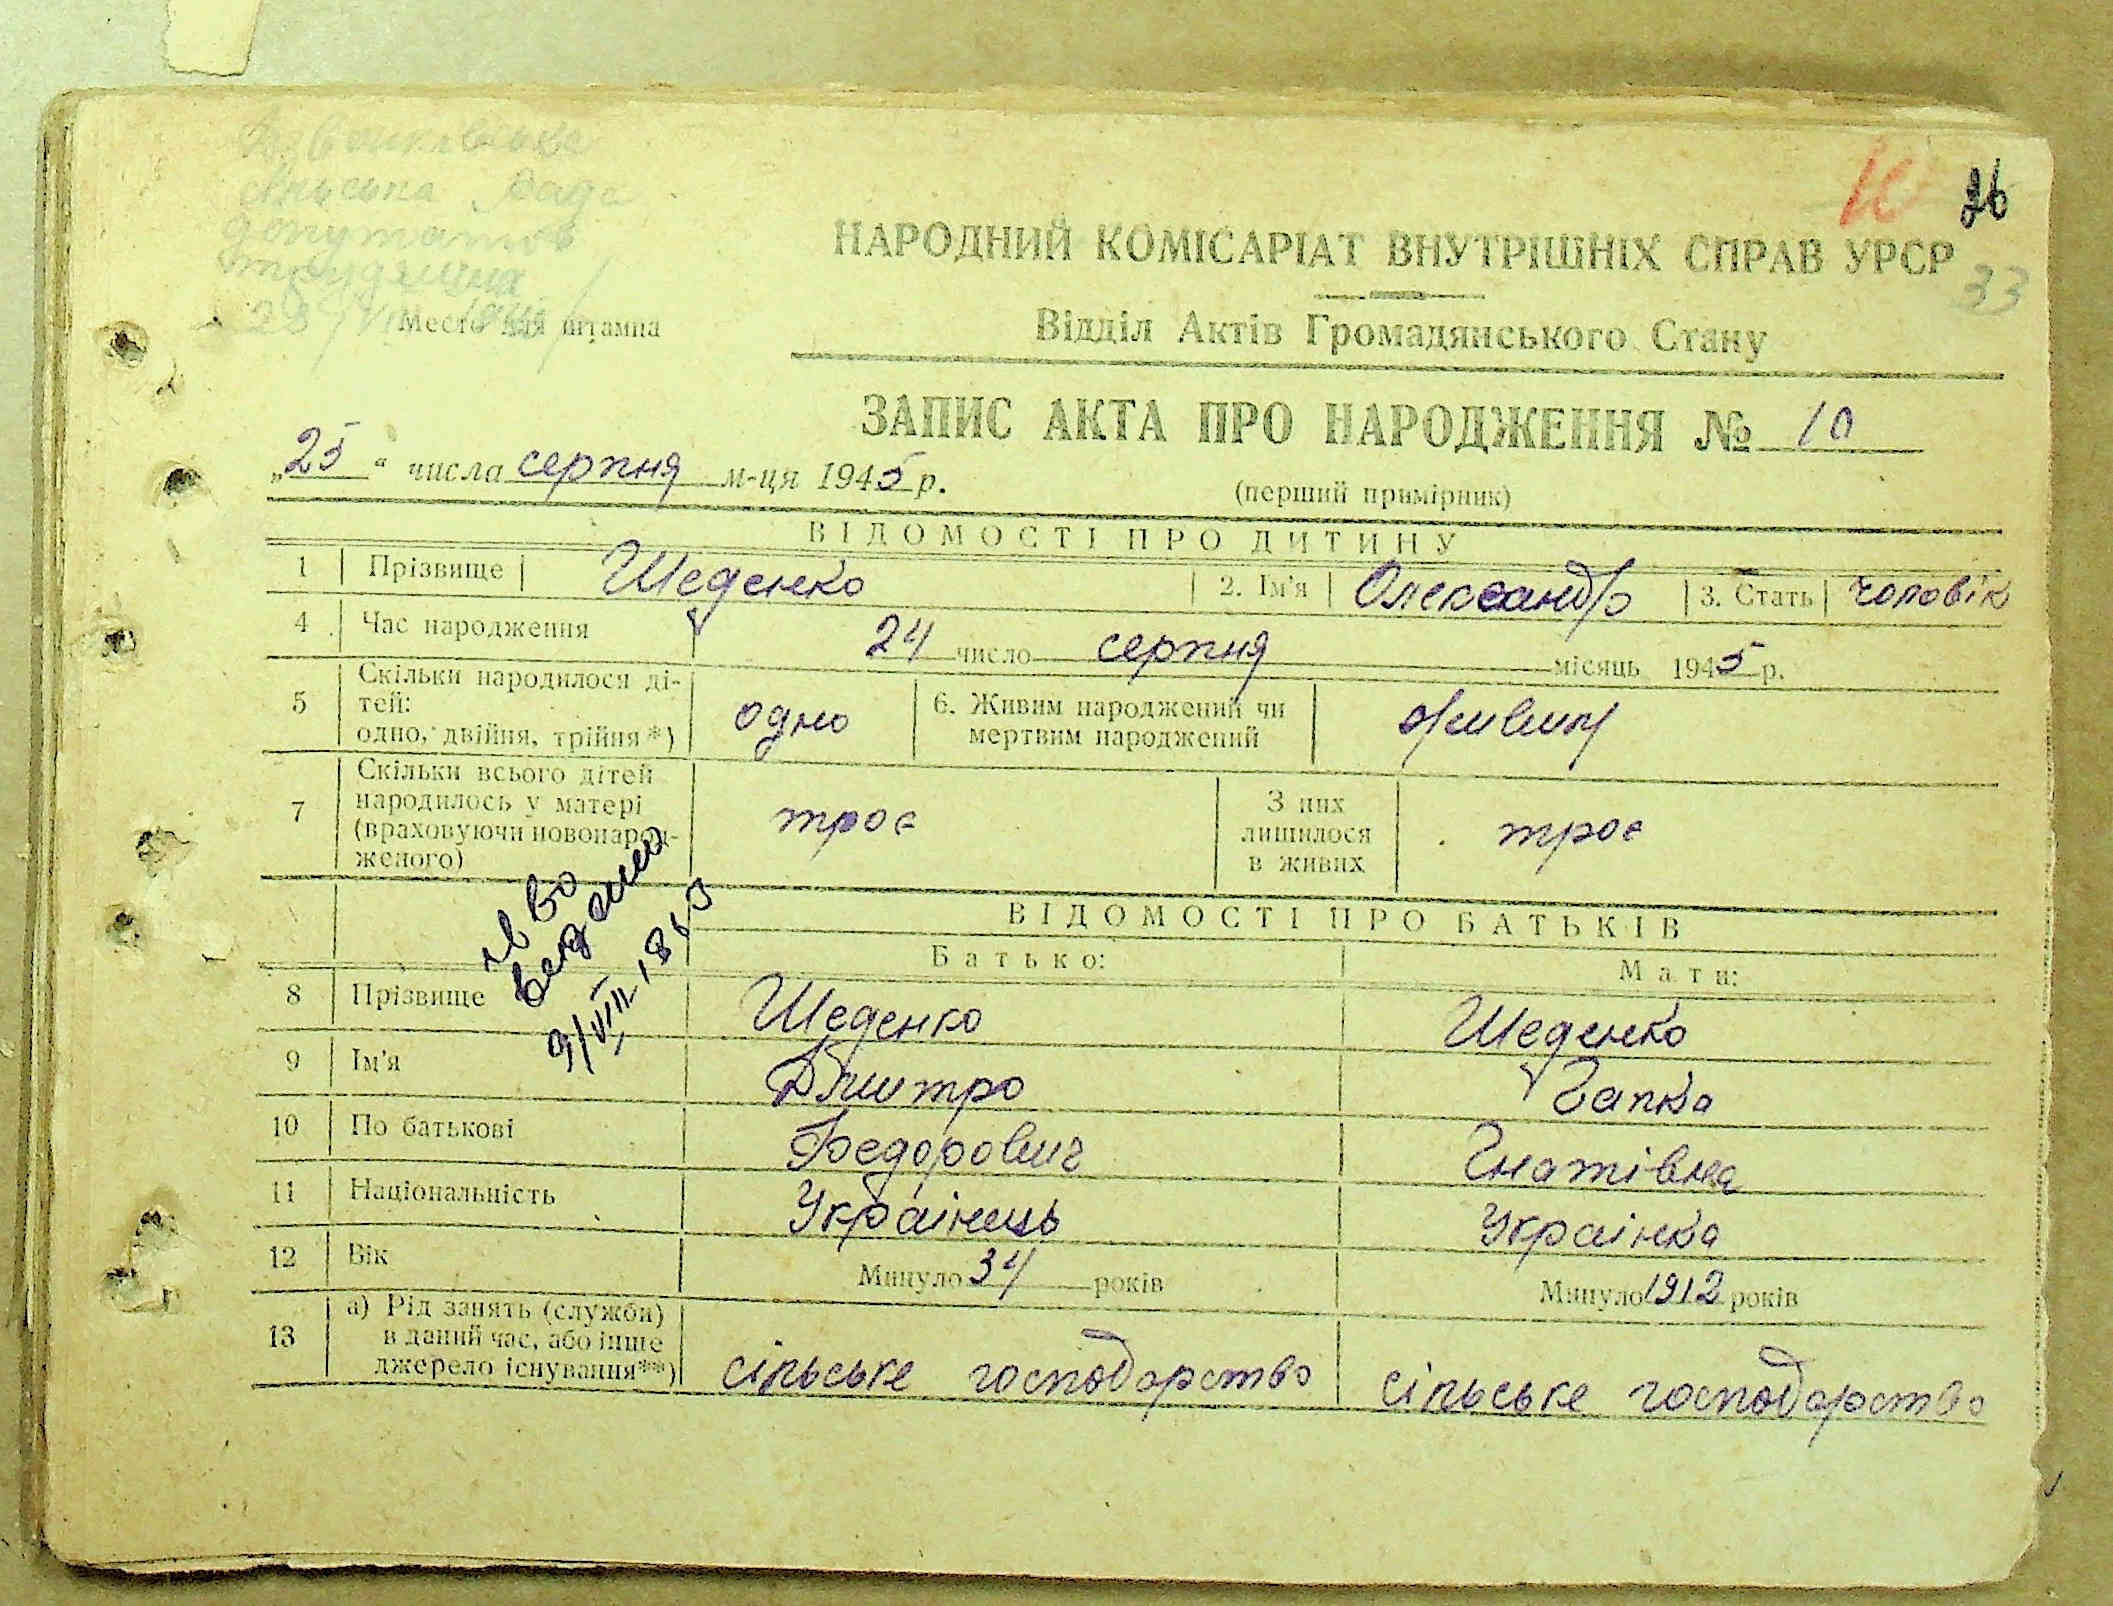 сільська рада
депутатів
трудящих
Место для штампа
10 26
НАРОДНИЙ КОМІСАРІАТ ВНУТРІШНІХ СПРАВ УРСР
33
Відділ Актів Громадянського Стану
ЗАПИС АКТА ПРО НАРОДЖЕННЯ № 10
„25“ числа серпня м-ця 1945 р.
(перший примірник)
ВІДОМОСТІ ПРО ДИТИНУ
1 Прізвище Шеденко 2. Ім'я Олександр 3. Стать чоловік
4 Час народження 24 число серпня місяць 1945 р.
5 Скільки народилося ді-
тей:
одно, двійня, трійня*) одно 6. Живим народжений чи
мертвим народжений живим
7 Скільки всього дітей
народилось у матері
(враховуючи новонарод-
женого) троє З них
лишилося
в живих троє
ВІДОМОСТІ ПРО БАТЬКІВ
Батько: Мати:
8 Прізвище Шеденко Шеденко
9 Ім'я Дмитро Гапка
10 По батькові Федорович Гнатівна
11 Національність Украінець Украінка
12 Вік Минуло 34 років Минуло 1912 років
13 а) Рід занять (служби)
в даний час, або інше
джерело існування**) сільське господарство сільське господарство